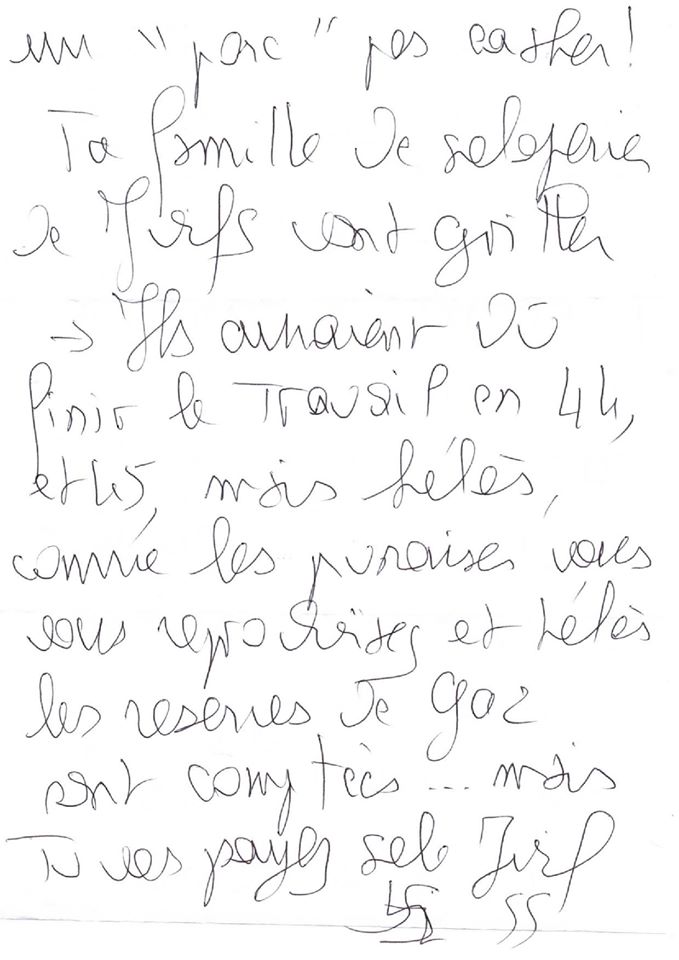 un "porc" pas casher!
Ta famille de saloperie
de Juifs vont griller
→ Ils auraient dû
finir le Travail en 44,
et 45, mais hélas,
comme les punaises vous
vous reproduisez et hélas
les reserves de gaz
sont comptées ... mais
Tu vas payer sale Juif
SS